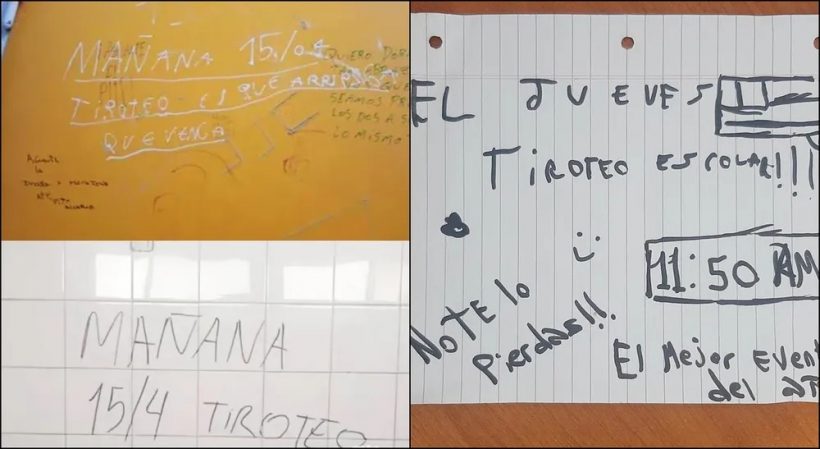 MAÑANA 15/04
TIROTEO ES QUE
QUE VENGA
QUIERO
SEAMOS
LOS DOS A
LO MISMO
MAÑANA
15/4 TIROTEO
EL JUEVES
TIROTEO ESCOLAR!!!
:)
11:50 AM
NO TE lo
pierdas!!!
El Mejor Event
del